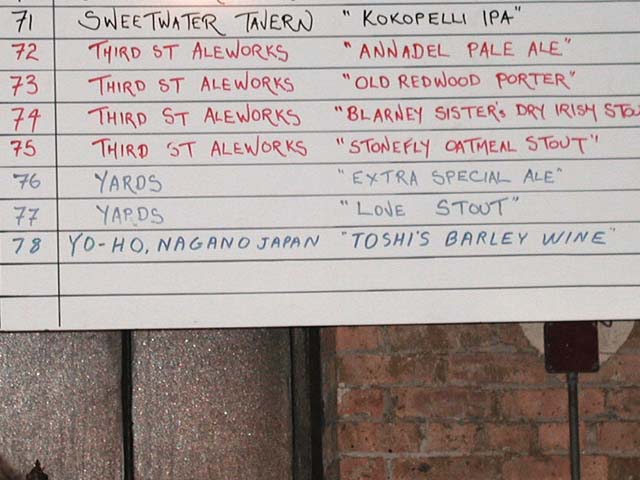 71 SWEETWATER TAVERN "KOKOPELLI IPA"
72 THIRD ST ALEWORKS "ANNADEL PALE ALE"
73 THIRD ST ALEWORKS "OLD REDWOOD PORTER"
74 THIRD ST ALEWORKS "BLARNEY SISTER'S DRY IRISH STOU
75 THIRD ST ALEWORKS "STONEFLY OATMEAL STOUT"
76 YARDS "EXTRA SPECIAL ALE"
77 YARDS "LOVE STOUT"
78 YO-HO, NAGANO JAPAN "TOSHI'S BARLEY WINE"